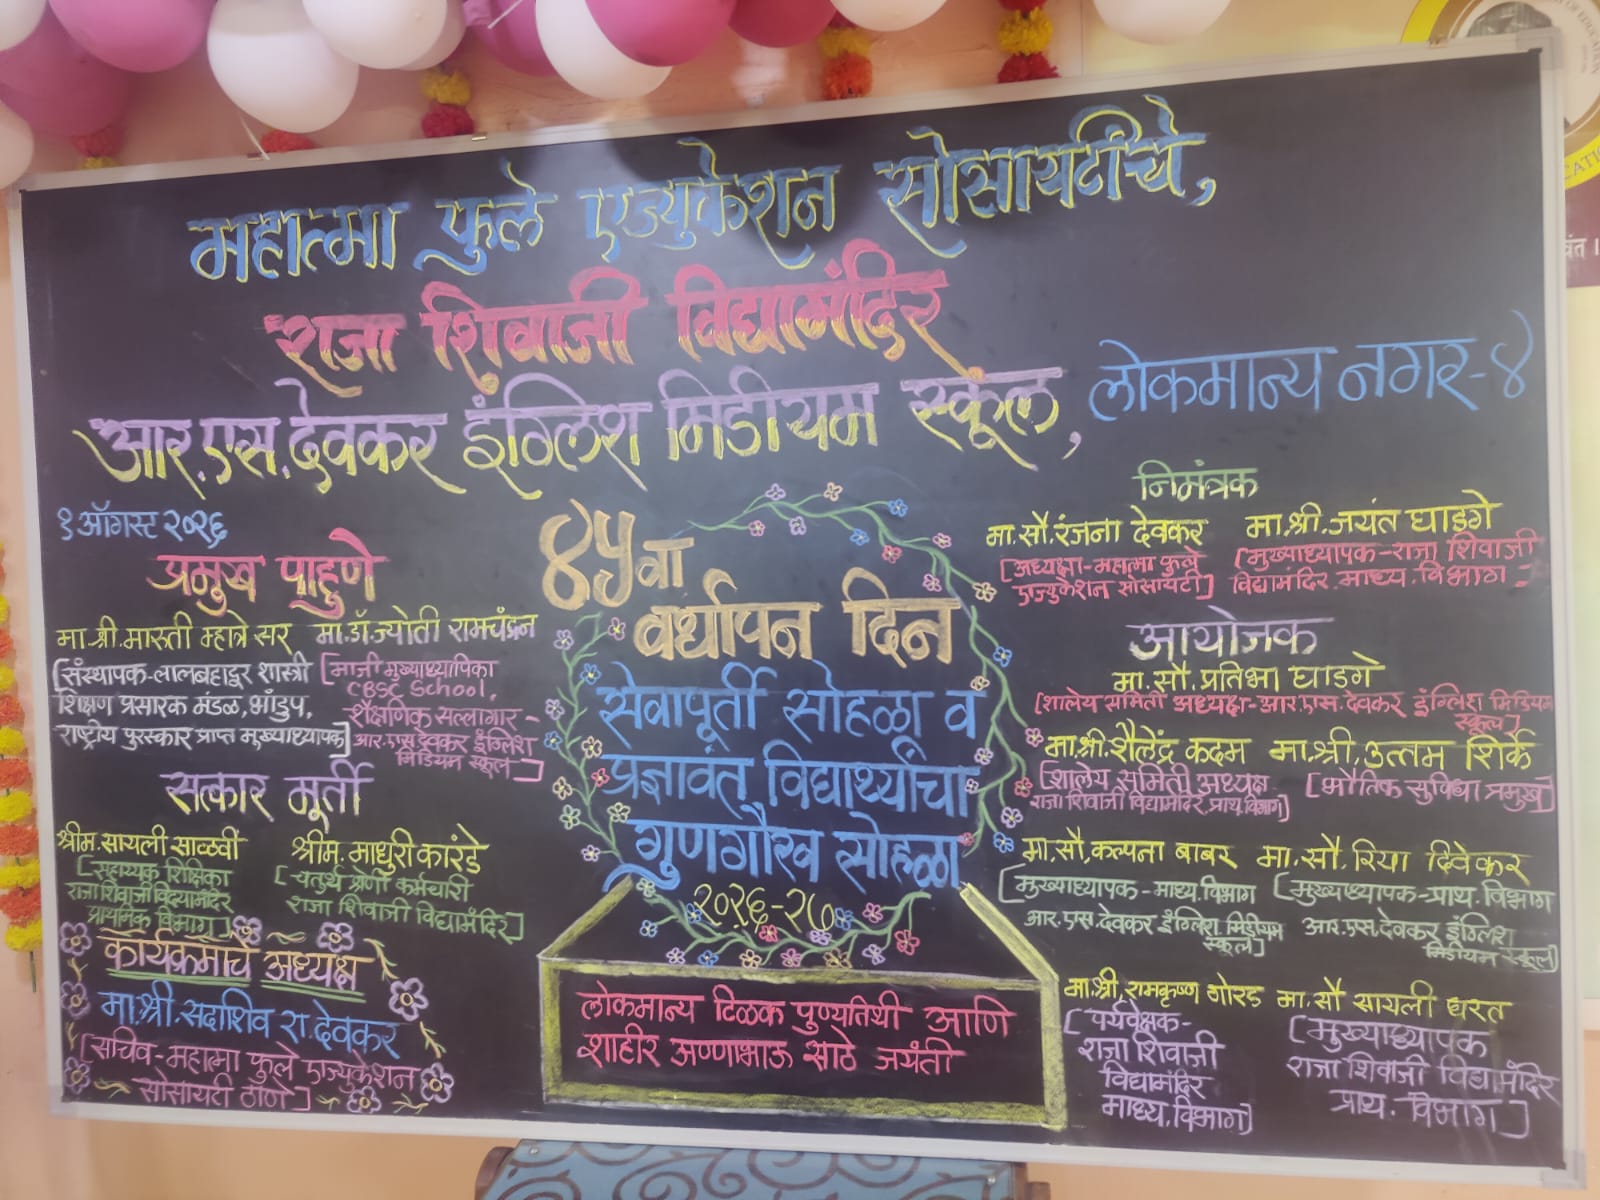 महात्मा फुले एज्युकेशन सोसायटीचे,
राजा शिवाजी विद्यामंदिर
आर.एस.देवकर इंग्लिश मिडीयम स्कूल, लोकमान्य नगर-४
१ ऑगस्ट २०२६
प्रमुख पाहुणे
मा.श्री.मारुती म्हात्रे सर
[संस्थापक-लालबहादुर शास्त्री
शिक्षण प्रसारक मंडळ, भांडुप,
राष्ट्रीय पुरस्कार प्राप्त मुख्याध्यापक]
मा.डॉ.ज्योती रामचंद्रन
[माजी मुख्याध्यापिका
CBSC School,
शैक्षणिक सल्लागार-
आर.एस.देवकर इंग्लिश
मिडियम स्कूल]
सत्कार मूर्ती
श्रीम.सायली साळवी
[सहाय्यक शिक्षिका
राजा शिवाजी विद्यामंदिर
प्राथमिक विभाग]
श्रीम. माधुरी कारंडे
[चतुर्थ श्रेणी कर्मचारी
राजा शिवाजी विद्यामंदिर]
कार्यक्रमाचे अध्यक्ष
मा.श्री.सदाशिव रा.देवकर
[सचिव-महात्मा फुले एज्युकेशन
सोसायटी ठाणे]
४५वा
वर्धापन दिन
सेवापूर्ती सोहळा व
प्रज्ञावंत विद्यार्थ्यांचा
गुणगौरव सोहळा
२०२६-२७
लोकमान्य टिळक पुण्यतिथी आणि
शाहीर अण्णाभाऊ साठे जयंती
निमंत्रक
मा.सौ.रंजना देवकर
[अध्यक्षा-महात्मा फुले
एज्युकेशन सोसायटी]
मा.श्री.जयंत घाडगे
[मुख्याध्यापक-राजा शिवाजी
विद्यामंदिर माध्य.विभाग]
आयोजक
मा.सौ.प्रतिभा घाडगे
[शालेय समिती अध्यक्ष-आर.एस.देवकर इंग्लिश मिडियम
स्कूल]
मा.श्री.शैलेंद्र कदम
[शालेय समिती अध्यक्ष
राजा शिवाजी विद्यामंदिर, प्राथ. विभाग]
मा.श्री.उत्तम शिर्के
[भौतिक सुविधा प्रमुख]
मा.सौ.कल्पना बाबर
[मुख्याध्यापक-माध्य.विभाग
आर.एस.देवकर इंग्लिश मिडियम
स्कूल]
मा.सौ.रिया दिवेकर
[मुख्यध्यापक-प्राथ.विभाग
आर.एस.देवकर इंग्लिश
मिडीयम स्कूल]
मा.श्री.रामकृष्ण गोरड
[पर्यवेक्षक-
राजा शिवाजी
विद्यामंदिर
माध्य.विभाग]
मा.सौ सायली घरत
[मुख्याध्यापक
राजा शिवाजी विद्यामंदिर
प्राथ. विभाग]